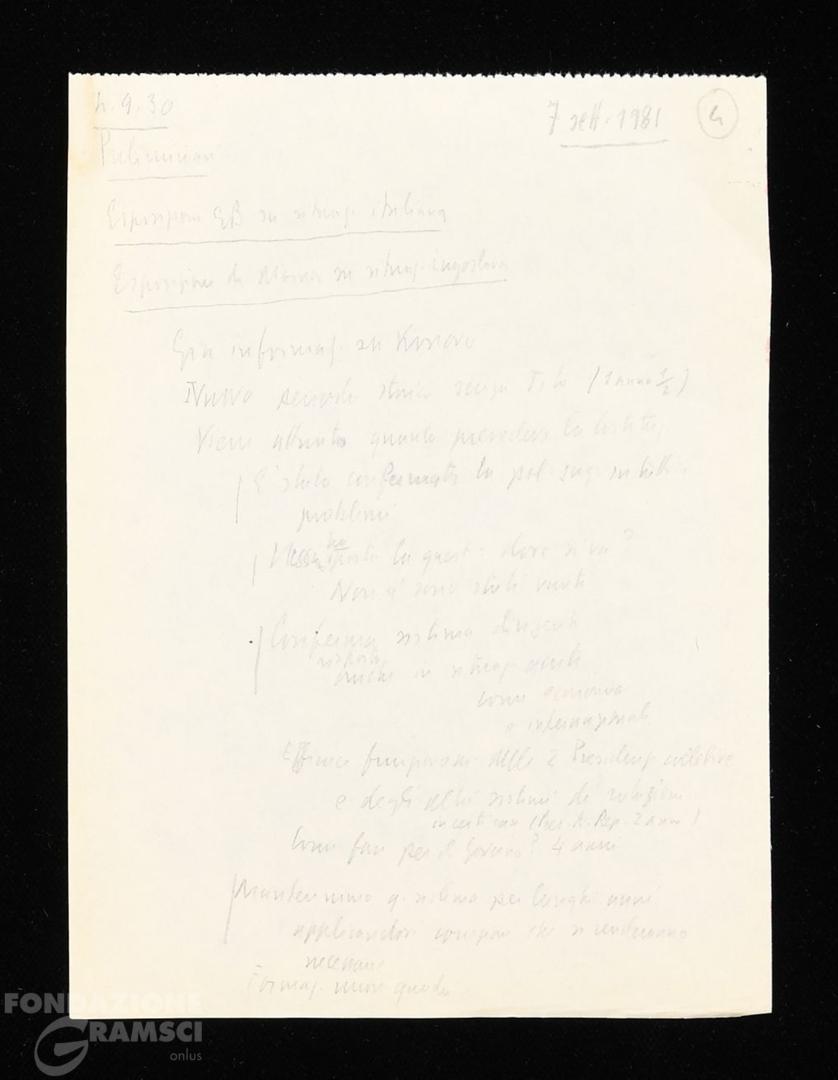 h. 9.30
7 sett. 1981
4
Preliminari
Esposizione EB su situaz. italiana
Esposizione di su situaz. jugoslava
Già informaz. su Kosovo
Nuovo periodo storico senza Tito (1 anno 1/2)
Viene attuato quanto prevedeva la Costituz.
E' stata confermata la pol. su tutti i
problemi
la quest.: dove si va?
Non ci sono stati vuoti
Conferma sistema dirigenti
anche in situaz. acute
come economia
e internazionale
Efficace funzionam. delle 2 Presidenze collettive
e degli altri sistemi di rotazione
in certi casi (Pres. A. Rep. 2 anni)
Come fare per il Governo? 4 anni
Manterremo q. sistema per lunghi anni
applicando che si renderanno
necessarie
Formaz. nuovi quadri
FONDAZIONE
GRAMSCI
onlus